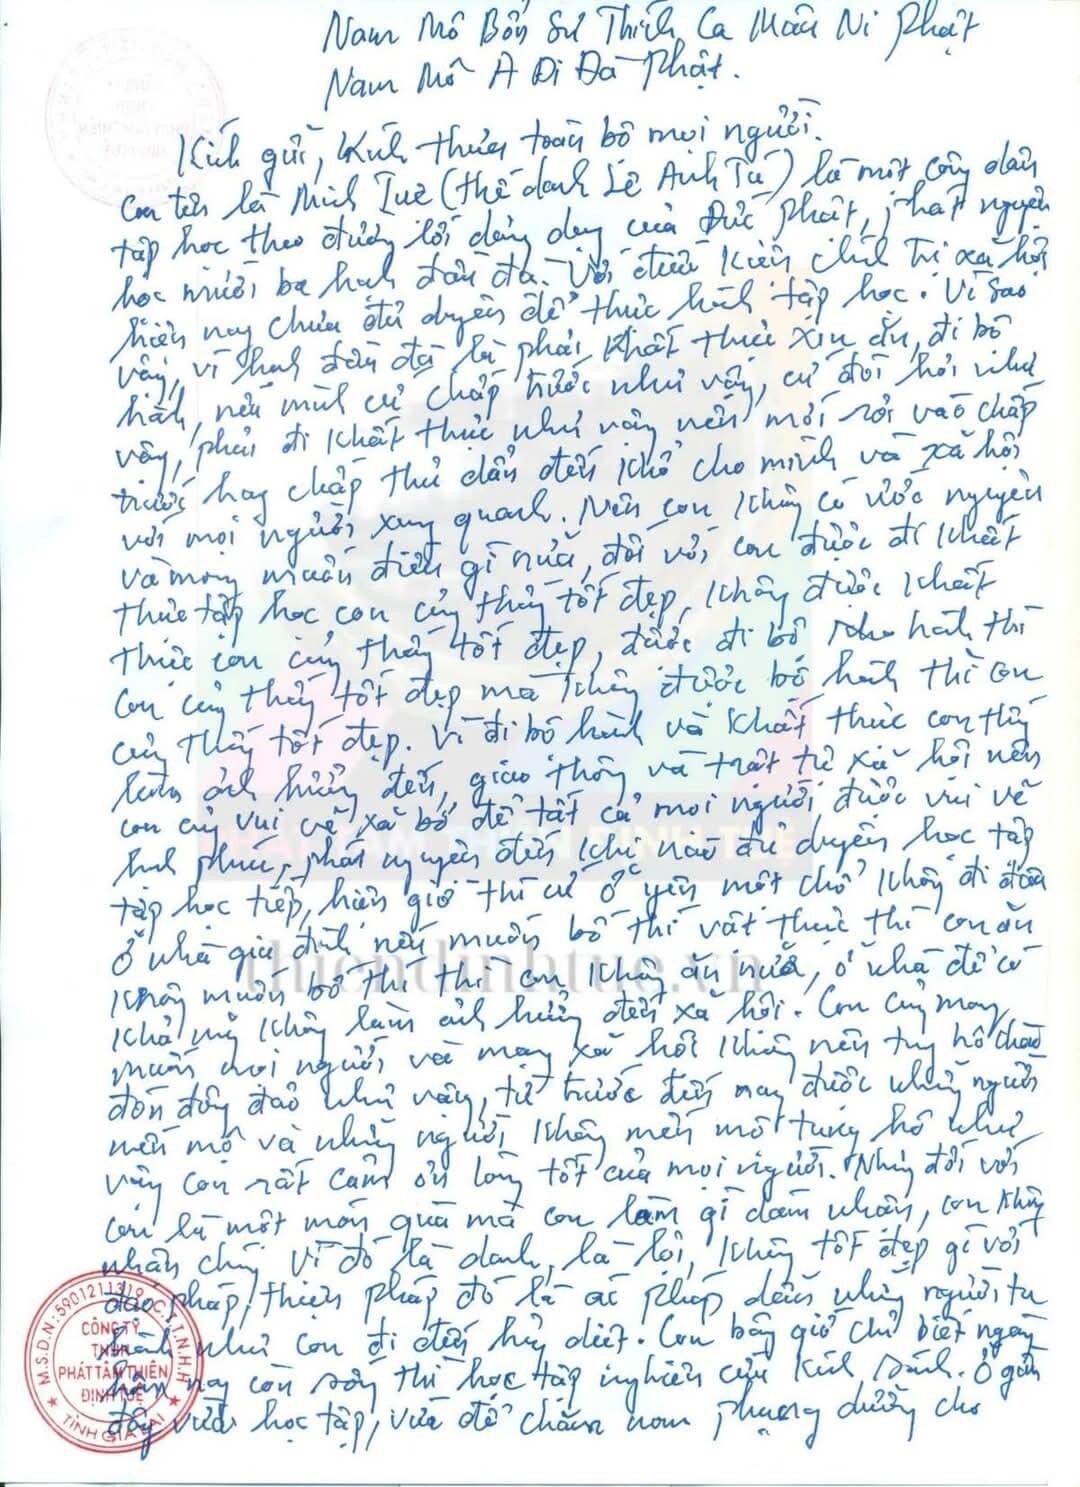 Nam Mô Bổn Sư Thích Ca Mâu Ni Phật
Nam Mô A Di Đà Phật.
Kính gửi, Kính thưa toàn bộ mọi người.
Con tên là Minh Tuệ (thế danh Lê Anh Tú) là một công dân
tập học theo đường lối dạy của Đức Phật, phát nguyện
học mười ba hạnh đầu đà. Với điều kiện chính trị xã hội
hiện nay chưa đủ duyên để thực hành tập học. Vì sao
vậy, vì hạnh đầu đà là phải khất thực xin ăn, đi bộ
hành, nếu mình cứ chấp trước như vậy, cứ đòi hỏi như
vậy, phải đi khất thực như vậy nên mới rơi vào chấp
trước hay chấp thủ dẫn đến khổ cho mình và xã hội
với mọi người xung quanh. Nên con không có ước nguyện
và mong muốn điều gì nữa, đối với con được đi khất
thực tập học con cũng thấy tốt đẹp, không được khất
thực con cũng thấy tốt đẹp, được đi bộ hành thì
con cũng thấy tốt đẹp mà không được bộ hành thì con
cũng thấy tốt đẹp. Vì đi bộ hành và khất thực con thấy
làm ảnh hưởng đến, giao thông và trật tự xã hội nên
con cũng vui vẻ xả bỏ để tất cả mọi người được vui vẻ
hạnh phúc, phát nguyện đến khi nào đủ duyên học tập
tập học tiếp, hiện giờ thì cứ ở yên một chỗ không đi đâu
ở nhà gia đình nếu muốn bố thí vật thực thì con ăn
không muốn bố thí thì con không ăn nữa, ở nhà để có
không làm ảnh hưởng đến xã hội. Con cũng mong
muốn mọi người và mong xã hội không nên tung hô chào
đón đông đảo như vậy, từ trước đến nay được những người
mến mộ và những người không mến mộ tung hô như
vậy con rất cảm ơn lòng tốt của mọi người. Nhưng đối với
con là một món quà mà con làm gì dám nhận, con không
nhận chúng vì đó là danh, là lợi, không tốt đẹp gì với
đạo pháp, thiện pháp đó là ác pháp dẫn những người tu
hành như con đi đến hủy diệt. Con bây giờ chỉ biết ngày
hôm nay còn sống thì học tập nghiên cứu kinh sách. Ở gần
đây vừa học tập, vừa để chăm nom phụng dưỡng cho
PHÁT TÂM THIỀN ĐỊNH TUỆ
thiendinhtue.vn
M.S.D.N: 5901211319 - C.T.T.N.H.H
CÔNG TY
TNHH
PHÁT TÂM THIỀN
ĐỊNH TUỆ
TỈNH GIA LAI